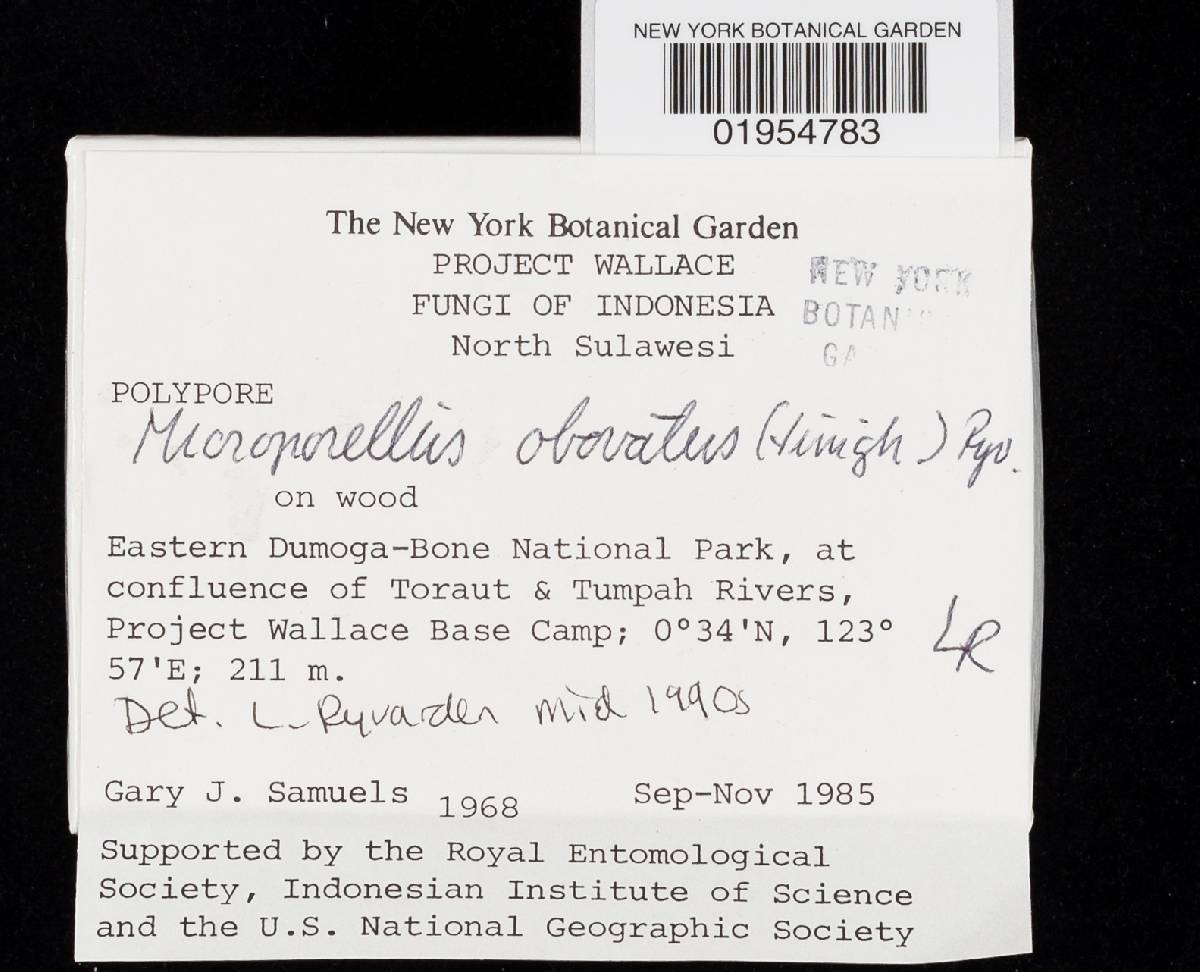 NEW YORK BOTANICAL GARDEN
01954783
The New York Botanical Garden
PROJECT WALLACE
FUNGI OF INDONESIA
North Sulawesi
NEW YORK
BOTAN
GA
POLYPORE
Microporellus obovatus (Jungh) Ryv.
on wood
Eastern Dumoga-Bone National Park, at
confluence of Toraut & Tumpah Rivers,
Project Wallace Base Camp; 0°34'N, 123°
57'E; 211 m.
LR
Det. L. Ryvarden mid 1990s
Gary J. Samuels 1968 Sep-Nov 1985
Supported by the Royal Entomological
Society, Indonesian Institute of Science
and the U.S. National Geographic Society